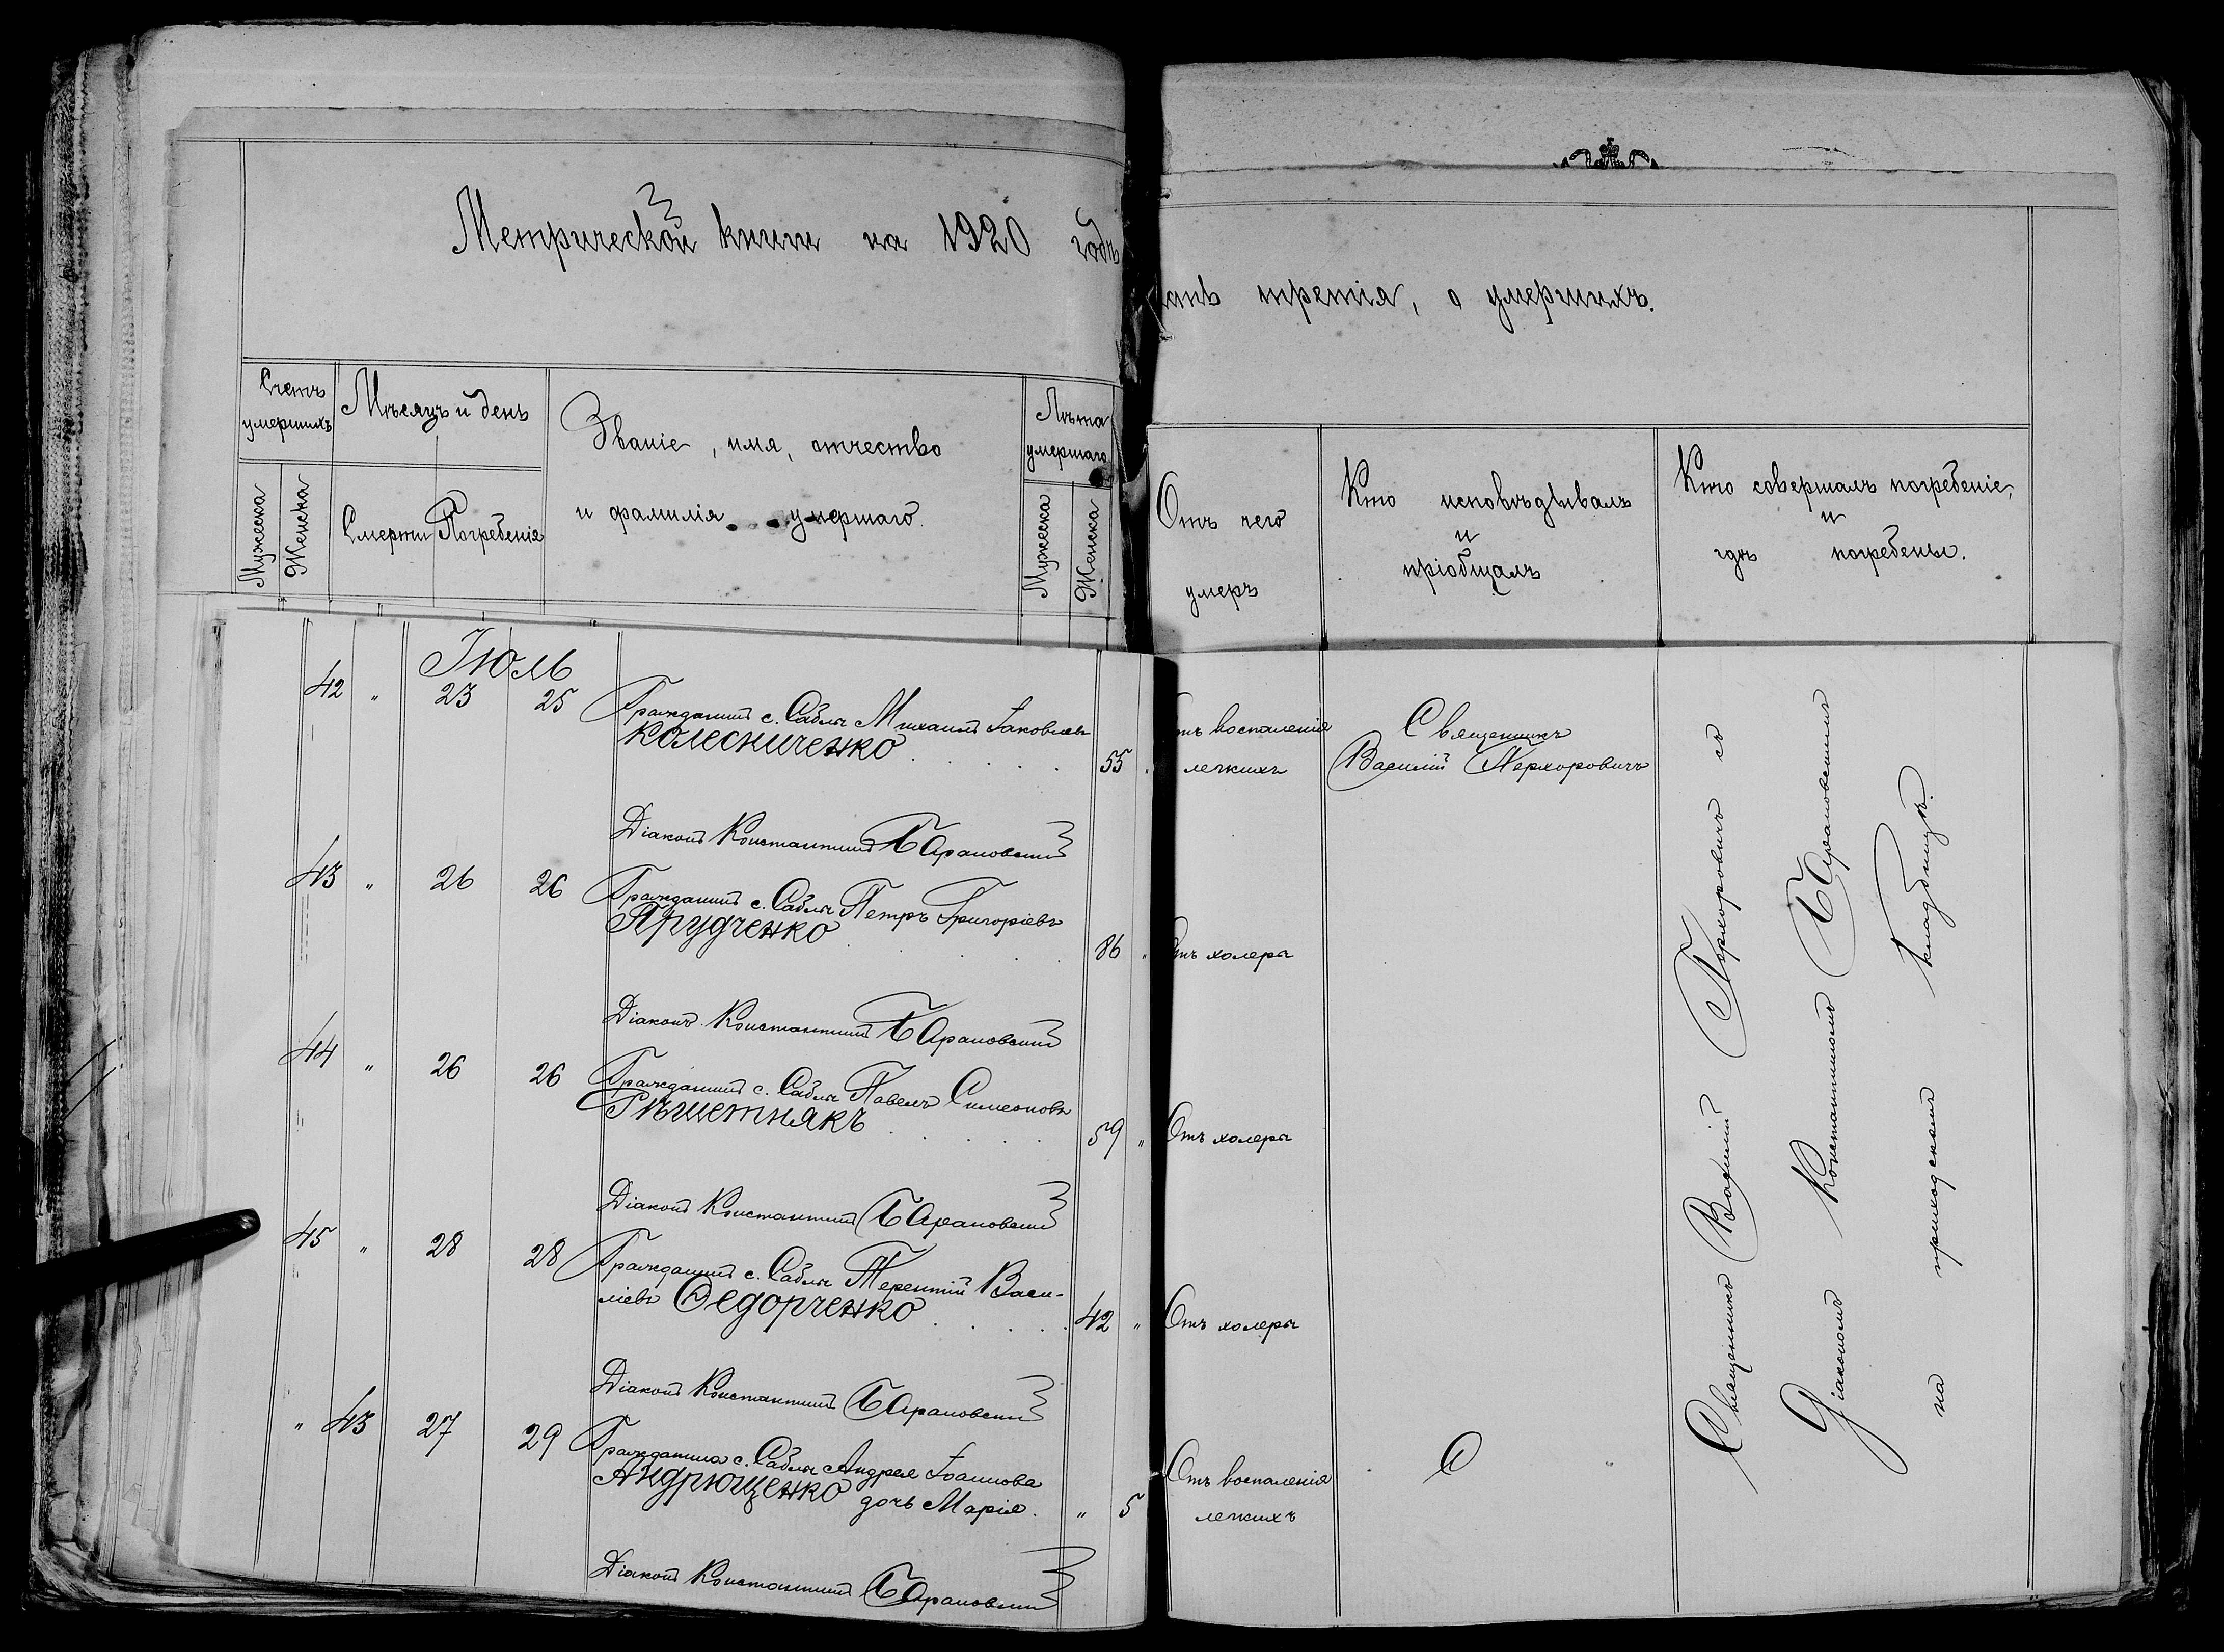 Метрической книги на 1920 годъ
третія, о умершихъ.
Счетъ умершихъ
Мужеска
Женска
Мѣсяцъ и день
Смерти
Погребенія
Званіе, имя, отчество
и фамилія умершаго.
Лѣта умершаго
Мужеска
Женска
Отъ чего
умеръ
Кто исповѣдывалъ
и
пріобщалъ
Кто совершалъ погребеніе,
и
гдѣ погребены.
Іюль
42 " 23 25 Гражданинъ с. Саблы Михаилъ Іаковлевъ
Колесниченко 55 "
воспаленія
легкихъ
Священникъ
Василій Перхоровичъ
Діаконъ Константинъ Барановскій
43 " 26 26 Гражданинъ с. Саблы Петръ Григоріевъ
Прудченко 86 " Отъ холеры
Діаконъ Константинъ Барановскій
44 " 26 26 Гражданинъ с. Саблы Павелъ Симеоновъ
Рѣшетнякъ 59 " Отъ холеры
Діаконъ Константинъ Барановскій
45 " 28 28 Гражданинъ с. Саблы Терентій Васи-
ліевъ Федорченко 42 " Отъ холеры
Діаконъ Константинъ Барановскій
" 43 27 29 Гражданина с. Саблы Андрея Іоаннова
Андрющенко дочь Марія. " 5
Отъ воспаленія
легкихъ
С
Діаконъ Константинъ Барановскій
Священникъ Василій Перхоровичъ со
Діакономъ Константиномъ Барановскимъ
на приходскомъ кладбищѣ.